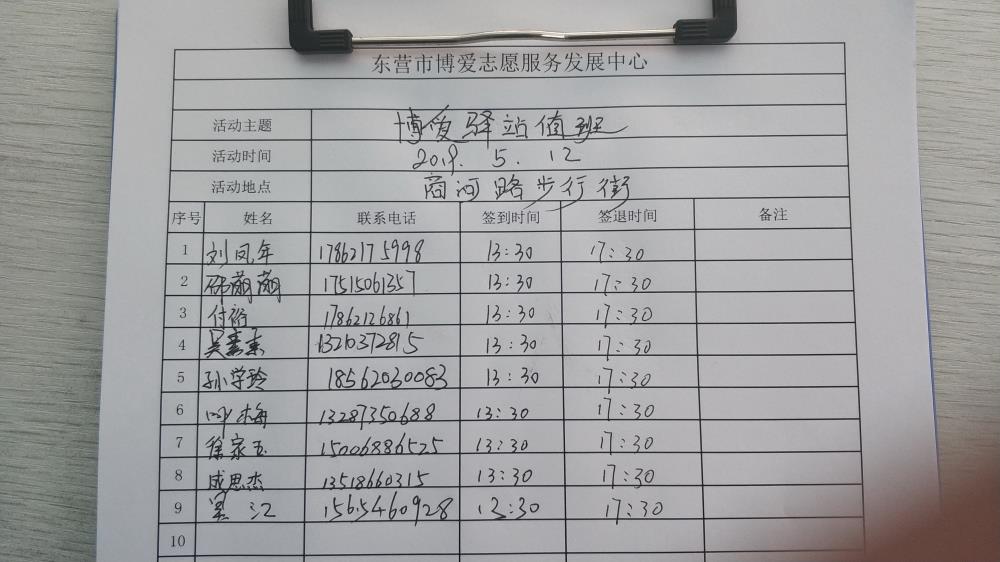 东营市博爱志愿服务发展中心
活动主题 博爱驿站值班
活动时间 2019. 5. 12
活动地点 商河路步行街
序号 姓名 联系电话 签到时间 签退时间 备注
1 刘凤年 17862175998 13:30 17:30
2 邵萌萌 17515061357 13:30 17:30
3 付裕 17862126861 13:30 17:30
4 吴素素 13210372815 13:30 17:30
5 孙学玲 18562030083 13:30 17:30
6 叶梅 13287350688 13:30 17:30
7 徐家玉 15006886525 13:30 17:30
8 成思杰 13518660315 13:30 17:30
9 江 15654460928 13:30 17:30
10